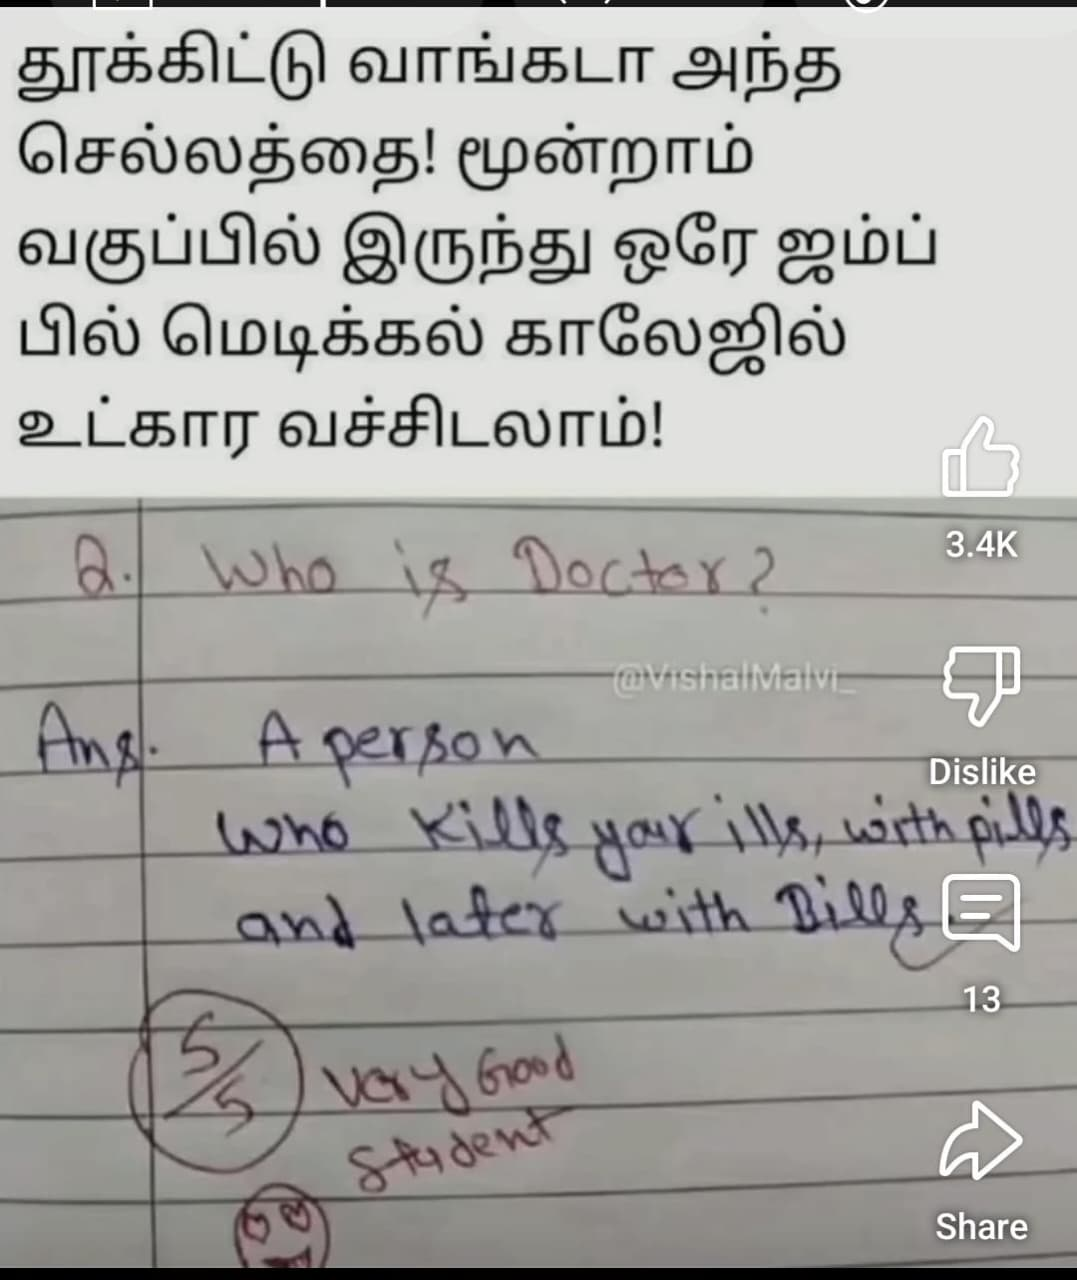 தூக்கிட்டு வாங்கடா அந்த
செல்லத்தை! மூன்றாம்
வகுப்பில் இருந்து ஒரே ஜம்ப்
பில் மெடிக்கல் காலேஜில்
உட்கார வச்சிடலாம்!
3.4K
Q. Who is Doctor?
@VishalMalvi_
Ans. A person
Dislike
who kills your ills, with pills
and later with Bills.
13
5/5 Very Good
Student
Share